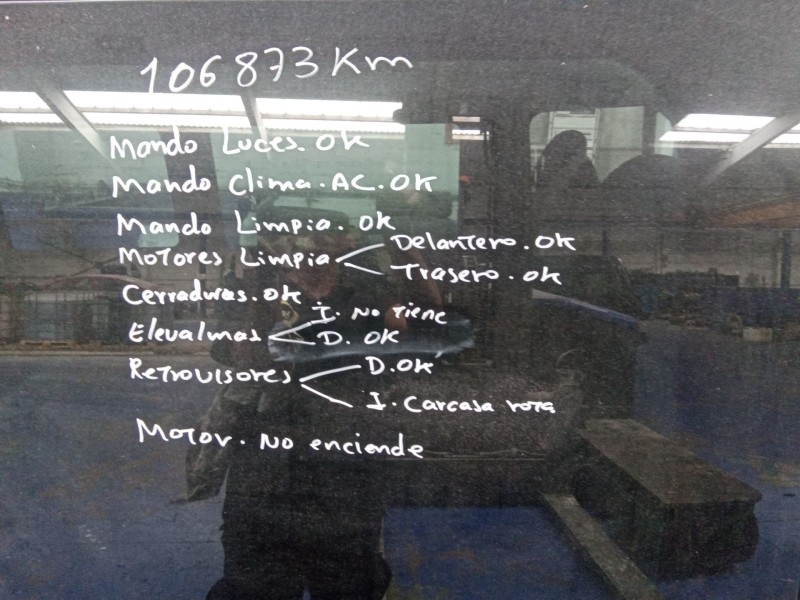 106873 Km
Mando Luces. OK
Mando Clima. AC. OK
Mando Limpia. OK
Motores Limpia
Delantero. OK
Trasero. OK
Cerraduras. OK
Elevalmas
I. No tiene
D. OK
Retrovisores
D. OK
I. Carcasa rota
Motor. No enciende